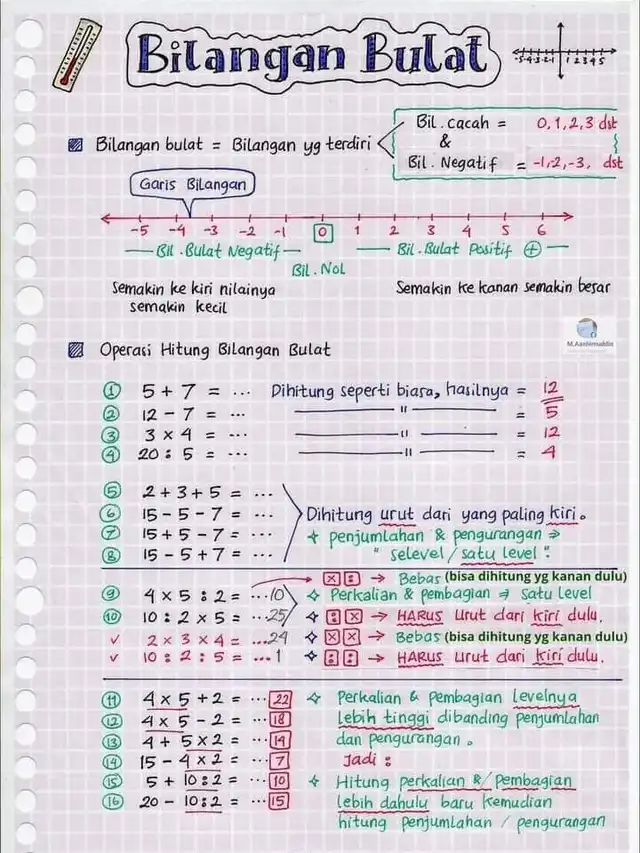 Bilangan Bulat
-5 -4 -3 -2 -1 1 2 3 4 5
Bilangan bulat = Bilangan yg terdiri
Bil. cacah = 0, 1, 2, 3 dst
&
Bil. Negatif = -1, 2, -3, dst
Garis Bilangan
-5 -4 -3 -2 -1 0 1 2 3 4 5 6
Bil. Bulat Negatif
Bil. Bulat Positif +
Bil. Nol
Semakin ke kiri nilainya
semakin kecil
Semakin ke kanan semakin besar
Operasi Hitung Bilangan Bulat
1 5 + 7 = ... Dihitung seperti biasa, hasilnya = 12
2 12 - 7 = ... —— " —— = 5
3 3 x 4 = ... —— " —— = 12
4 20 : 5 = ... —— " —— = 4
5 2 + 3 + 5 = ...
6 15 - 5 - 7 = ... Dihitung urut dari yang paling kiri.
7 15 + 5 - 7 = ... + penjumlahan & pengurangan ⇒
8 15 - 5 + 7 = ... " selevel / satu level ".
x : → Bebas (bisa dihitung yg kanan dulu)
9 4 x 5 : 2 = ...10 Perkalian & pembagian ⇒ satu Level
10 10 : 2 x 5 = ...25 : x → HARUS urut dari kiri dulu.
✓ 2 x 3 x 4 = ...24 x x → Bebas (bisa dihitung yg kanan dulu)
✓ 10 : 2 : 5 = ...1 : : → HARUS urut dari kiri dulu.
11 4 x 5 + 2 = ... 22 Perkalian & Pembagian levelnya
12 4 x 5 - 2 = ... 18 lebih tinggi dibanding penjumlahan
13 4 + 5 x 2 = ... 14 dan pengurangan.
14 15 - 4 x 2 = ... 7 Jadi :
15 5 + 10 : 2 = ... 10 Hitung perkalian &/ Pembagian
16 20 - 10 : 2 = ... 15 lebih dahulu baru kemudian
hitung penjumlahan / pengurangan